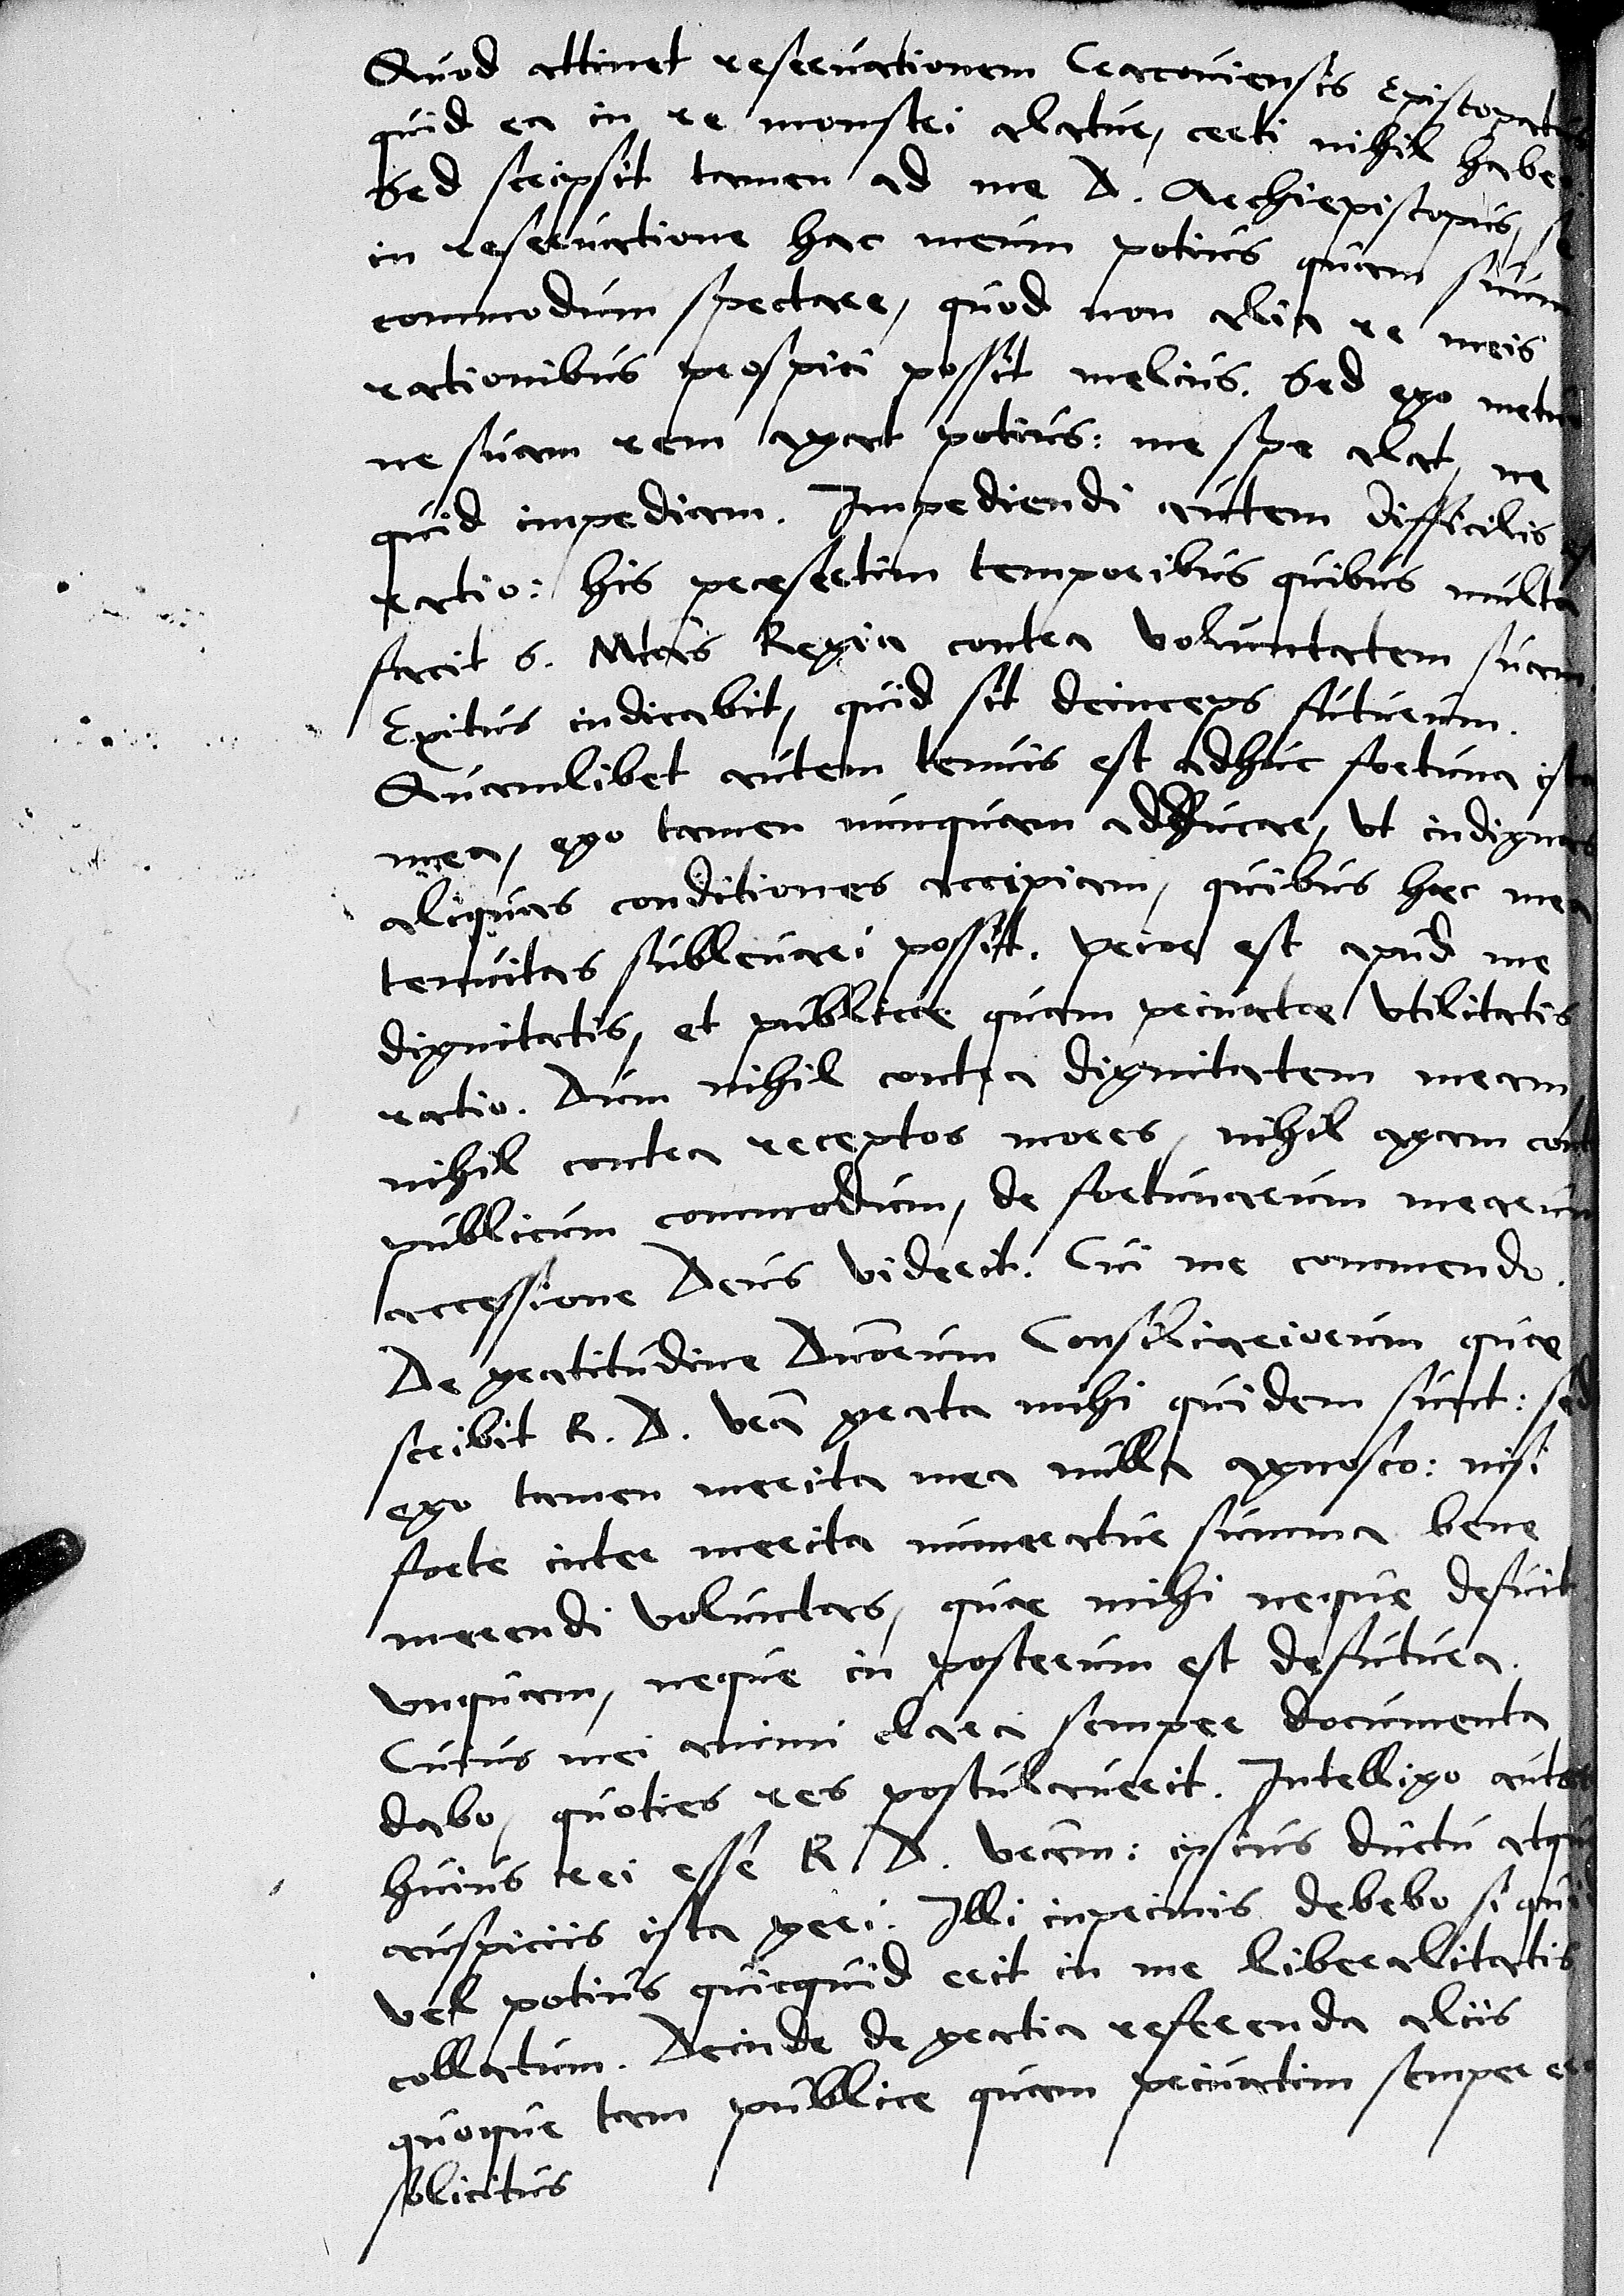 Quod attinet reseruationem Cracouiensis Episcopatus
quid ea in re monstri alatur, certi nihil habeo
Sed scripsit tamen ad me D. Archiepiscopus, se
in reseruatione hac meum potius quam suum
commodum spectare, quod non alia re meis
rationibus prospici possit melius. Sed ego metuo
ne suam rem agat potius: me spe alat, ne
quid impediam. Impediendi autem difficilis est
ratio: his presertim temporibus quibus multa
facit S. Mtas Regia contra voluntatem suam.
Exitus indicabit, quid sit deinceps futurum.
Quamlibet autem tenuis est adhuc fortuna ista
mea, ego tamen nunquam adducar, vt indignas
aliquas conditiones accipiam, quibus haec mea
tenuitas subleuari possit. prior est apud me
dignitatis, et publicae quam priuatae vtilitatis
ratio. Dum nihil contra dignitatem meam
nihil contra receptos mores, nihil agam cont
publicum commodum, de fortunarum mearum
accessione Deus viderit. Cui me commendo.
De gratitudine Dnorum Consiliariorum quae
scribit R. D. vra grata mihi quidem sunt: sed
ego tamen merita mea nulla agnosco: nisi
forte inter merita numeratur summa bene
merendi voluntas, quae mihi neque defuit
vnquam, neque in posterum est defutura.
Cuius mei animi clara semper documenta
dabo, quoties res postulauerit. Intelligo autem
huius rei esse R D. vram: ipsius ductu atque
auspiciis ista geri. Illi inprimis debebo si quid
vel potius quicquid erit in me liberalitatis
collatum. Deinde de gratia referenda aliis
quoque tam publice quam priuatim semper ero
solicitus